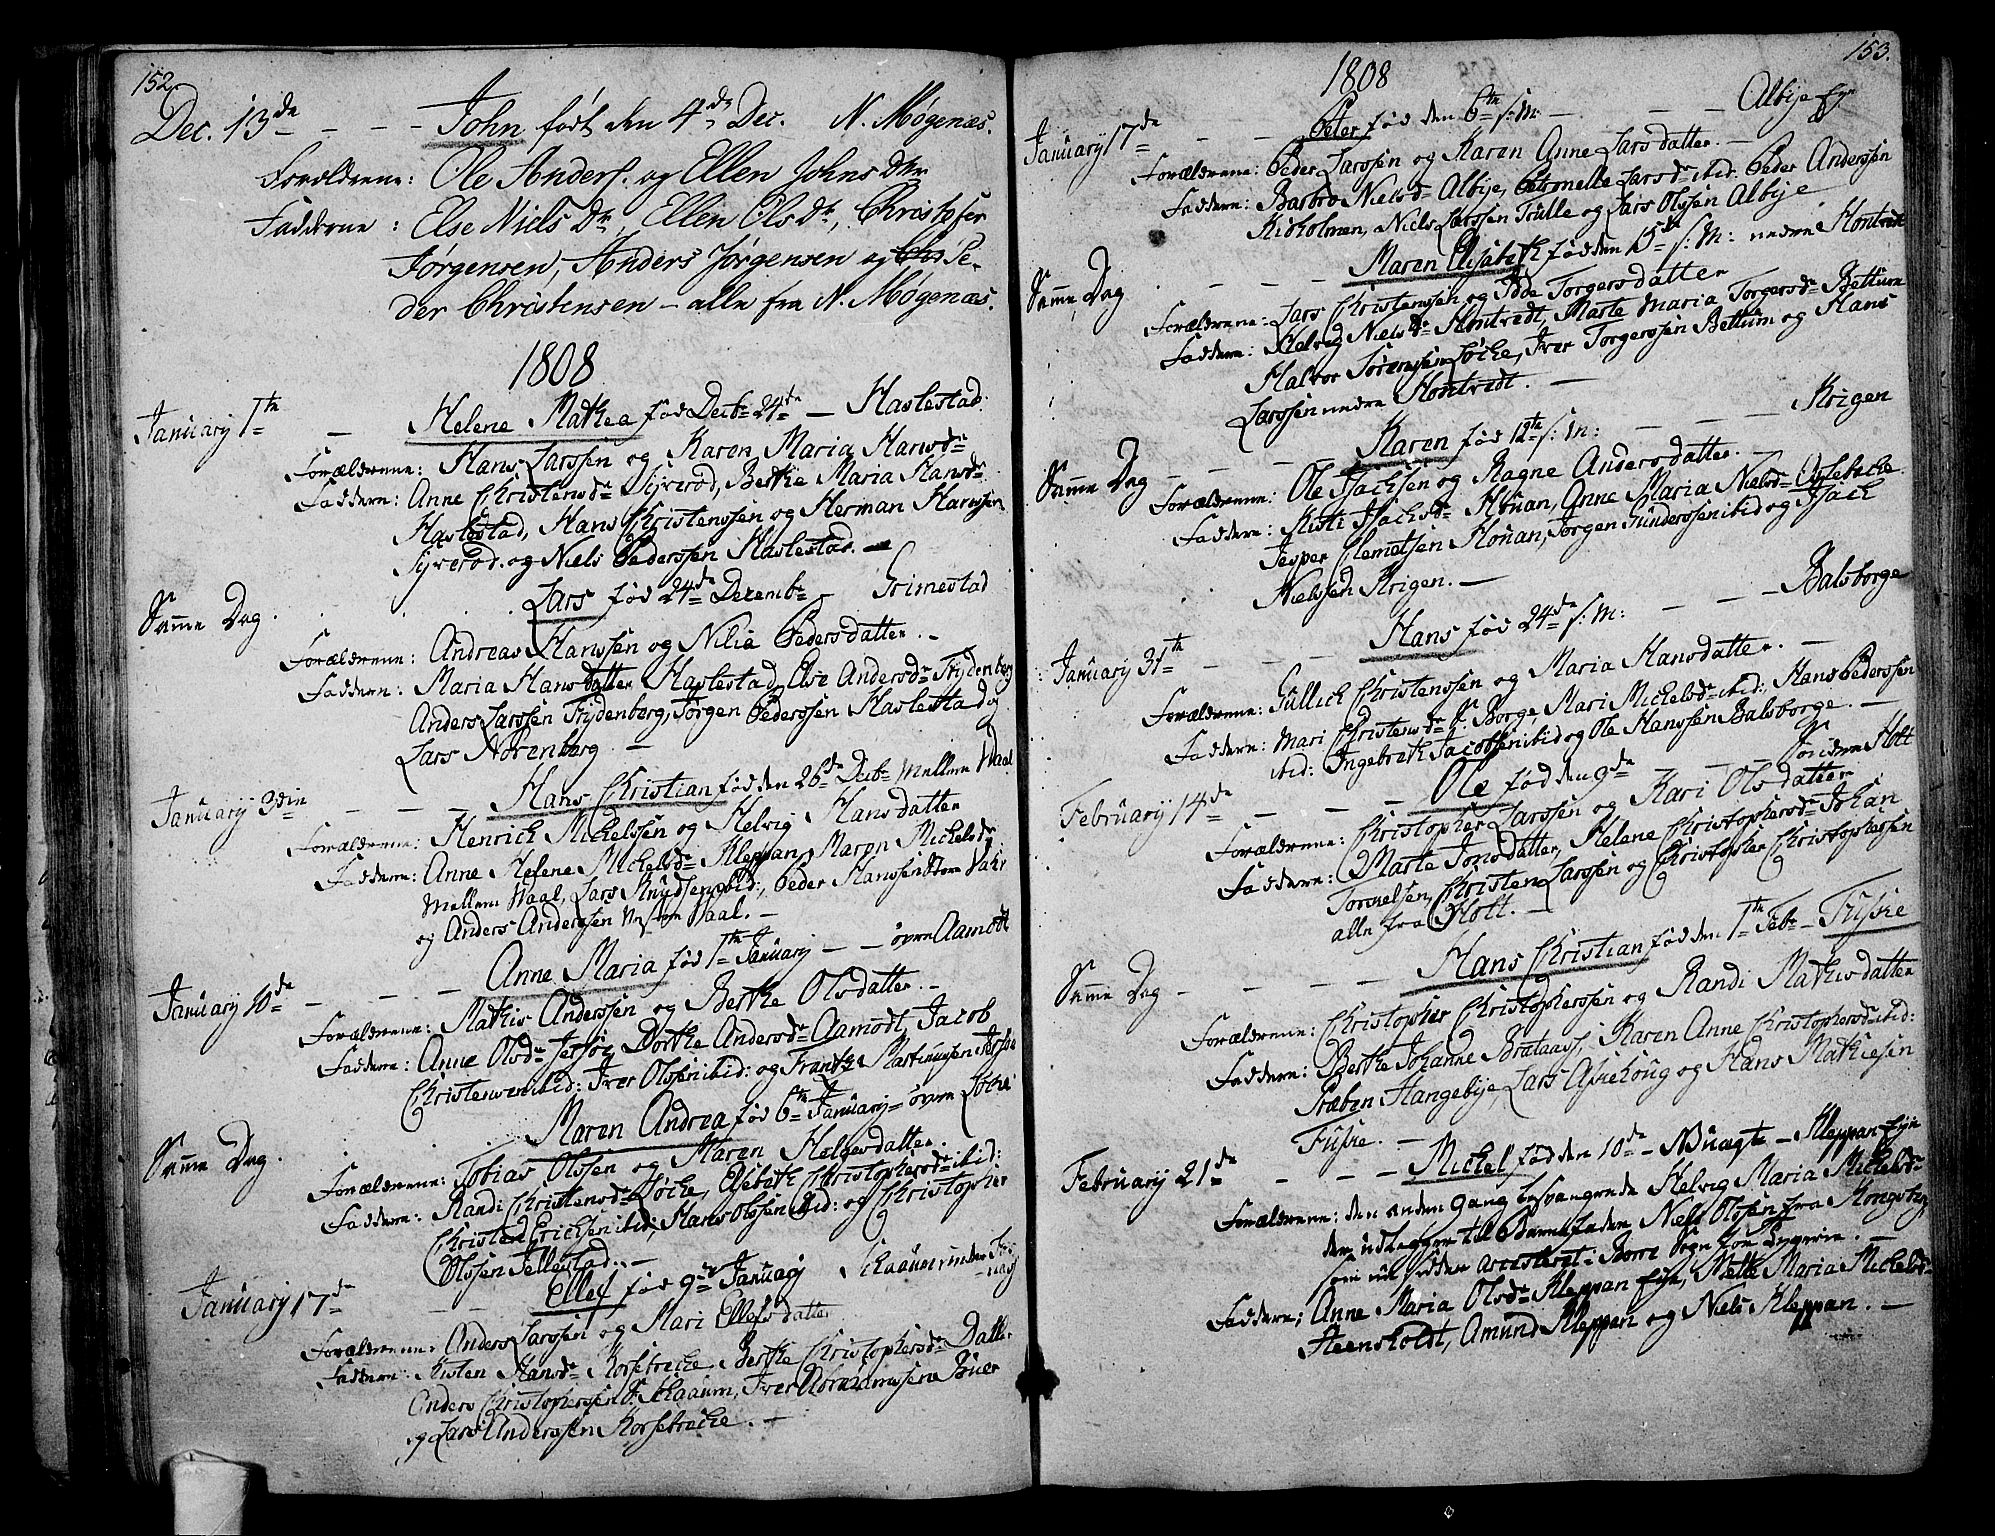 152.
Dec. 13de - - - John født den 4de Dec. N. Møgenæs.
Forældrene: Ole Anders. og Ellen Johns Dtr
Fadderne: Else Niels Dtr, Ellen Ols dtr, Christofer
Jørgensen, Anders Jørgensen og Pe-
der Christensen - alle fra N. Møgenæs.
1808
January 1te - Helene Mathea fød Decbr 24de - Haslestad.
Forældrene: Hans Larssen og Karen Maria Hansdr
Faddere: Anne Christensdr Syverød, Berthe Maria Hansdr
Haslestad, Hans Christenssen og Herman Hanssen
Syverød og Niels Pederssen Haslestad. -
Samme Dag. Lars fød 24de Decembr - Grimestad
Forældrene: Andreas Hanssen og Nilia Pedersdatter. -
Faddere: Maria Hansdatter Haslestad, Else Andersdr Frydenberg
Anders Larssen Frydenberg, Jørgen Pederssen Haslestad og
Lars Norenberg -
January 3die - - - Hans Christian fød den 26de Decbr Mellem Waal
Forældrene: Henrich Michelssen og Helvig Hansdatter
Faddere: Anne Helene Michelsdr Kleppan, Maren Michelsdr
Mellem Waal, Lars Knudsen ibid:, Peder Hanssen
og Anders Anderssen Waal. -
January 10de - - - Anne Maria fød 1te January - - øvre Aamodt
Forældrene: Mathis Anderssen og Berthe Olsdatter. -
Faddere: Anne Olsdr Jersøy, Dorthe Andersdr Aamodt, Jacob
Christenssen ibid: Iver Olssen ibid: og Frantz Martinussen
Samme Dag. Maren Andrea fød 6te January øvre
Forældrene: Tobias Olssen og Maren Helgesdatter.
Faddere: Randi Christensdr Løche, Elsebeth Christophersdr ibid:
Christen Erichsen ibid; Hans Olssen ibid: og Christopher
Olssen Jellestad. -
January 17de - - Ellef fød 9de January
Forældrene: Anders Larssen og Mari Ellefsdatter
Faddere: Kisten Hansdr Korsetreche, Berthe Christophersdr
Anders Christopherssen S. Skaaum, Iver Abrahamssen Buer
og Lars Anderssen Korsetreche. -
153.
1808
January 17de - - Peter fød den 6te s: M: - - - Albye Eye
Forældrene: Peder Larssen og Karen Anne Larsdatter. -
Faddere: Barbro Nielsdr Albije, Petronelle Larsdr ibid. Peder Anderssen
Kidholmen, Niels Larssen Trulle og Lars Olssen Albije
Samme Dag - - - - Maren Elisabeth fød den 15de s: M: nedre Hontvedt
Forældrene: Lars Christenssen og Idde Torgersdatter
Faddere: Helvig Nielsdr Hontvedt, Marte Maria Torgersdr Bettum
Halvor Sørenssen Løche, Iver Torgerssen Bettum og Hans
Larssen nedre Hontvedt. -
Samme Dag - - - Karen fød 12te s: M: - - - Krigen
Forældrene: Ole Isachsen og Ragne Andersdatter. -
Faddere: Kisti Isachsdr Houan, Anne Maria Nielsdr
Jesper Clemetsen Houan, Jørgen Gunderssen ibid og Isach
Nielssen Krigen. -
January 31te - - - Hans fød 24de s: M: - - - Balsborge
Forældrene: Gullich Christenssen og Maria Hansdatter. -
Faddere: Mari Christensdr S. Borge, Mari Michelsdr ibid: Hans Pederssen
ibid: Ingebreth Jacobsen ibid og Ole Hanssen Balsborge. -
February 14de - - - Ole fød den 9de - - - Søndre Holt
Forældrene: Christopher Larssen og Kari Olsdatter
Faddere: Marte Jonsdatter, Helene Christophersdr Johan
Torvelsen, Christen Larssen og Christopher Christopherssen
alle fra Holt. -
Samme Dag - - - - Hans Christian fød den 1te Feb - Fuske
Forældrene: Christopher Christopherssen og Randi Mathisdatter
Faddere: Berthe Johanne Brataass, Karen Anne Christophersdr ibid:
Præben Hangebije, Lars Askehoug og Hans Mathiesen
Fuske. -
February 21de - - - Michel fød den 10de - Uægte - Kleppan Eije
Forældrene: den anden gang besvangrede Helvig Maria Michelsdr
den udlegger til Barnefader Niels Olssen fra Kongsberg
som nu sidder arresteret: Borre Sogn for Tyverie. -
Faddere: Anne Maria Olsdr Kleppan Eije, Mette Maria Michelsdr
Steensholdt, Amund Kleppan og Niels Kleppan. -